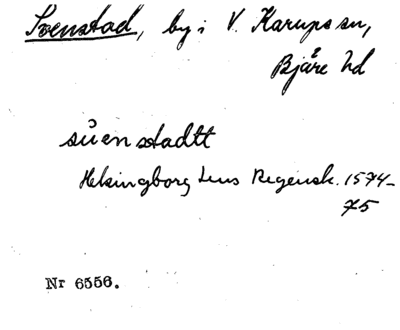 Svenstad, by i V. Karups sn,
Bjäre hd
suenstadtt
Helsingborg Lens Regensk. 1574-
75
Nr 6556.